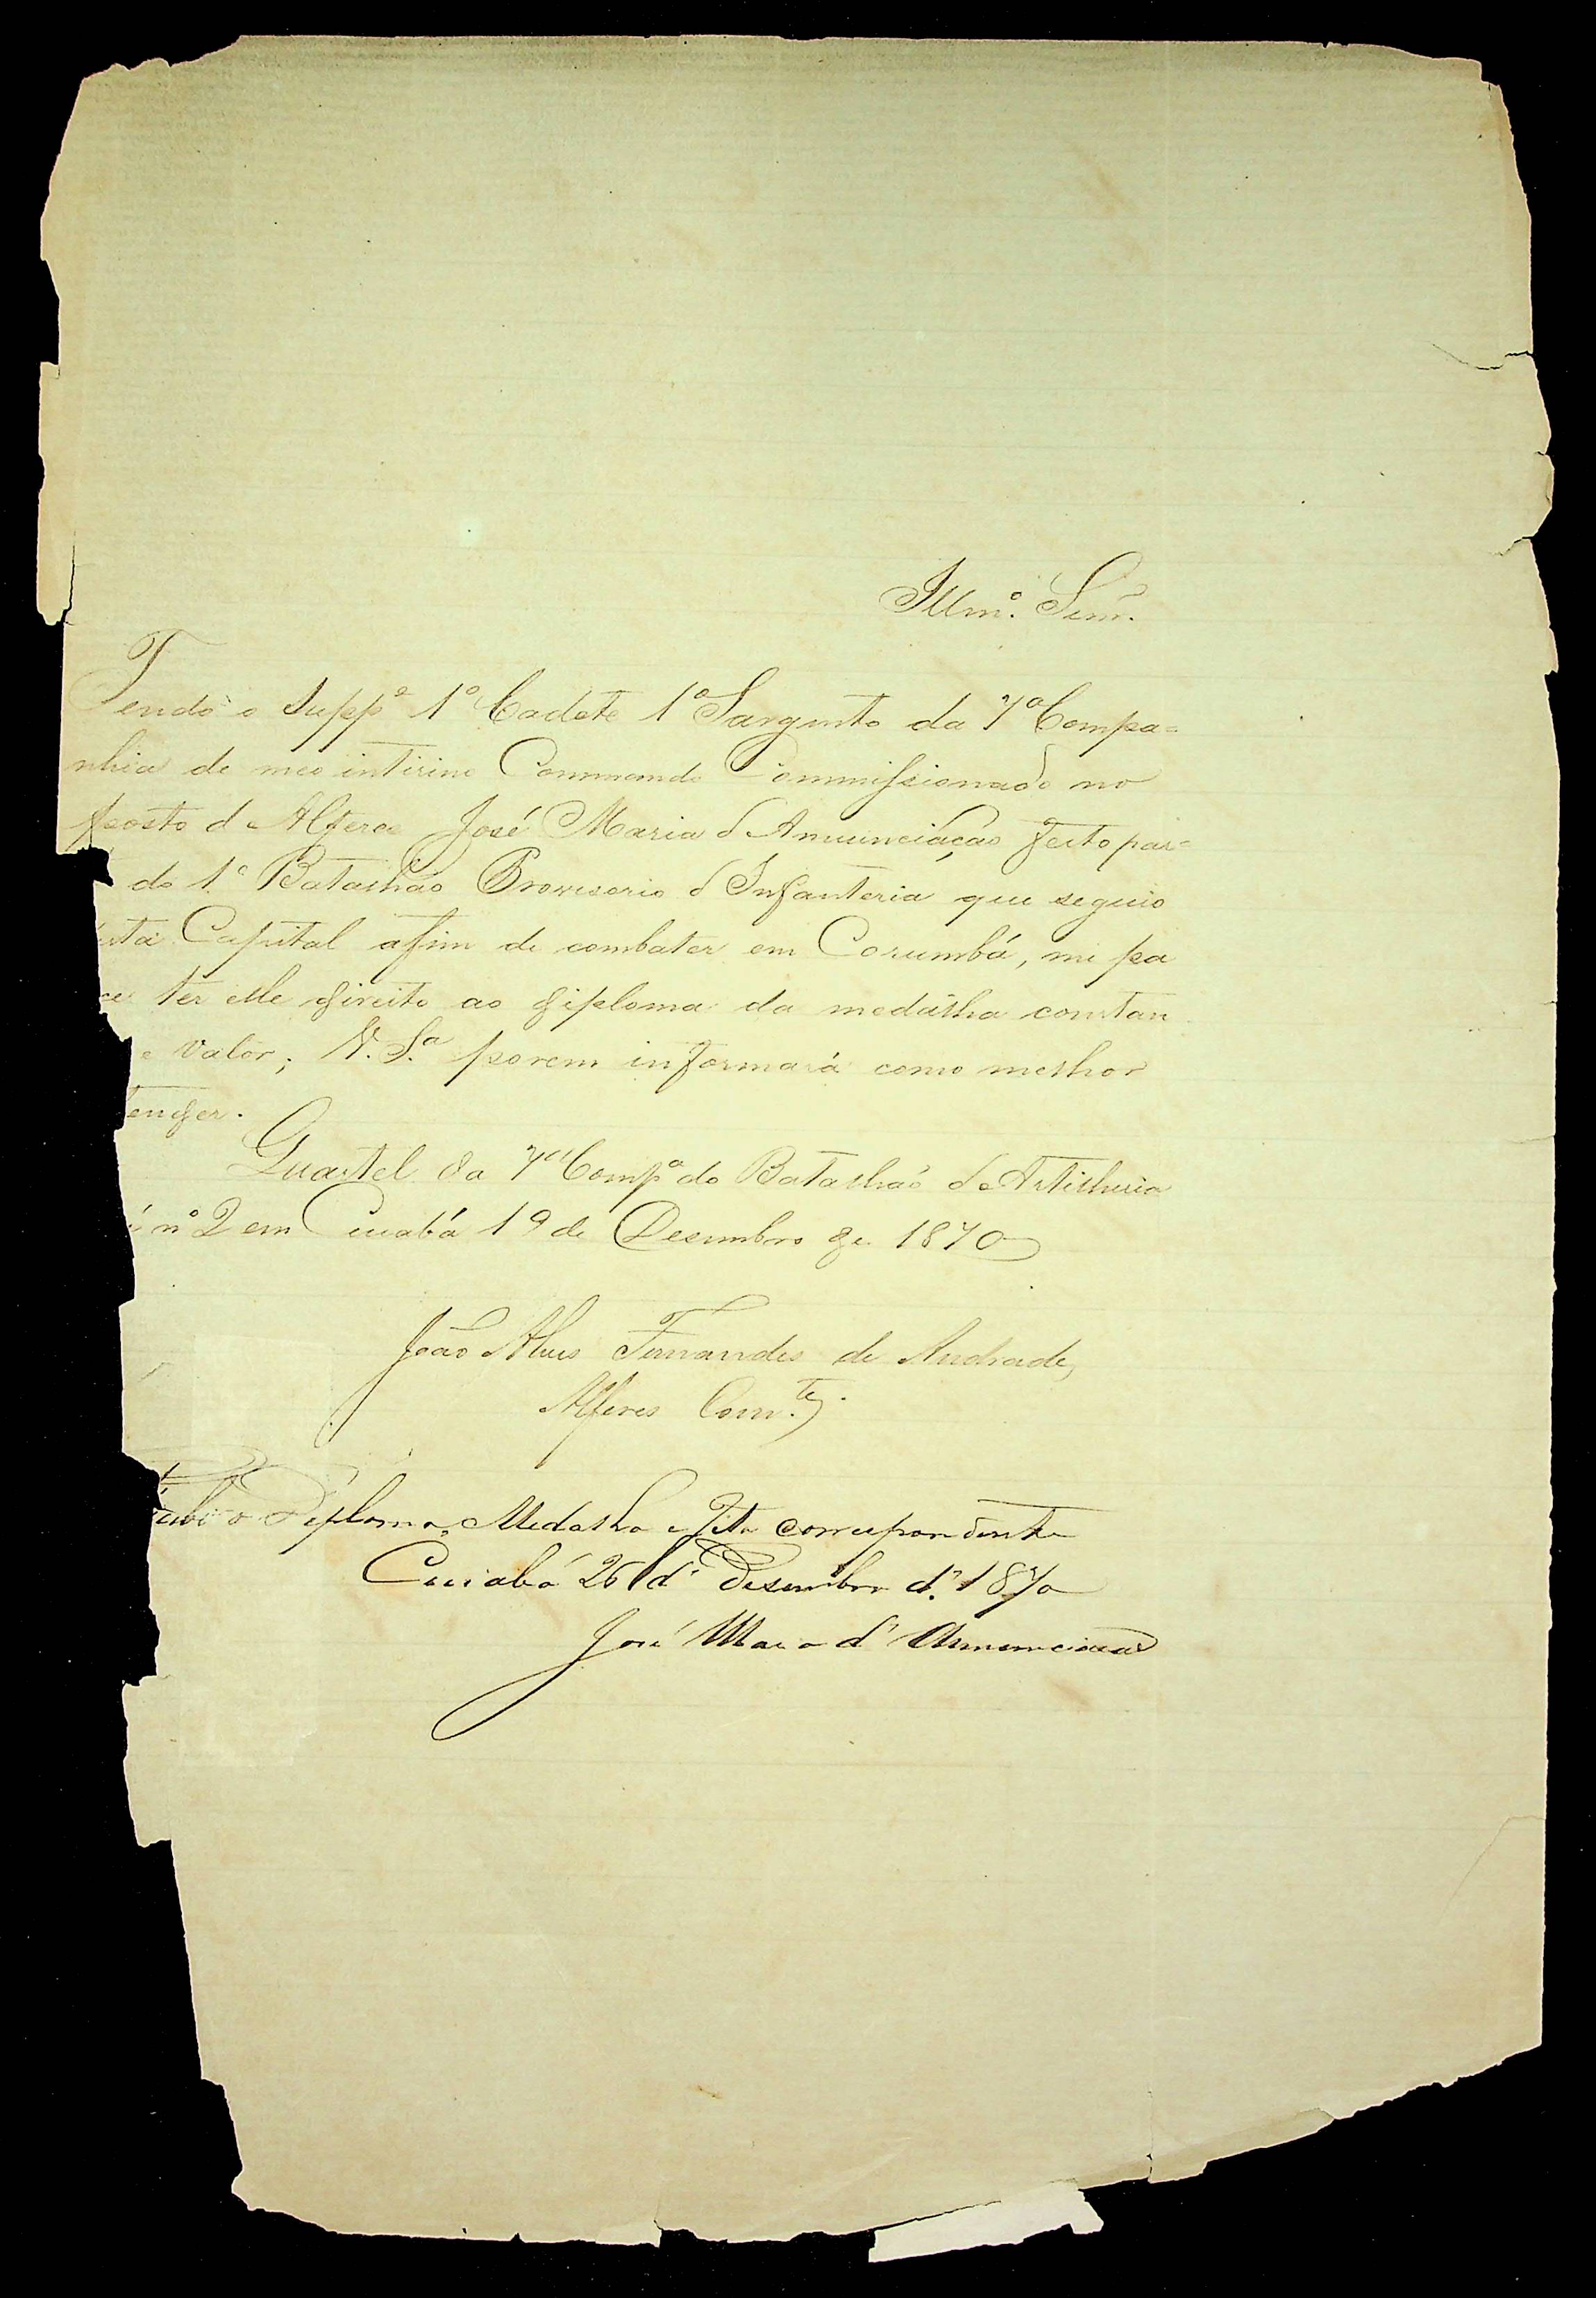 Illmº. Senr.
Tendo o Suppº 1º Cadete 1º Sargento da 7ª Compa=
nhia de meo interino Commando Commissionado no
posto d Alferes José Maria d'Annunciação feito par=
do 1º Batalhão Provisorio d Infanteria que seguio
sta Capital afim de combater em Corumbá, me pa
ce ter elle direito ao diploma da medalha constan
e valor; V. Sª porem informará como melhor
tender.
Quartel da 7ª Compª do Batalhão de Artilheria
é nº 2 em Cuiabá 19 de Desembro de 1870
João Alves Fernandes de Andrade,
Alferes Com.te
cebi o Diploma, Medalha e Fita correspondente
Cuiabá 26 d' Desembro d' 1870
José Maria d' Annunciação